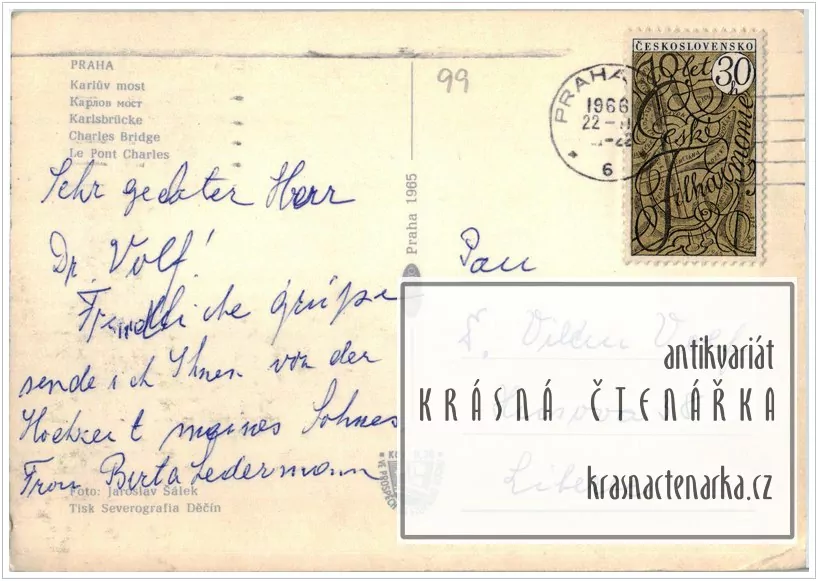 PRAHA
Karlův most
Карлов мост
Karlsbrücke
Charles Bridge
Le Pont Charles
99
ČESKOSLOVENSKO
70 let
30 h
České
Filharmonie
PRAHA
1966
22-
6
Sehr geehrter Herr
Dr. Volf!
Freundliche grüße
sende ich Ihnen von der
Hochzeit meines Sohnes
Frau Berta Ledermann
Foto: Jaroslav Šálek
Tisk Severografia Děčín
Praha 1965
Pan
Vilém Volf
antikvariát
KRÁSNÁ ČTENÁŘKA
krasnactenarka.cz